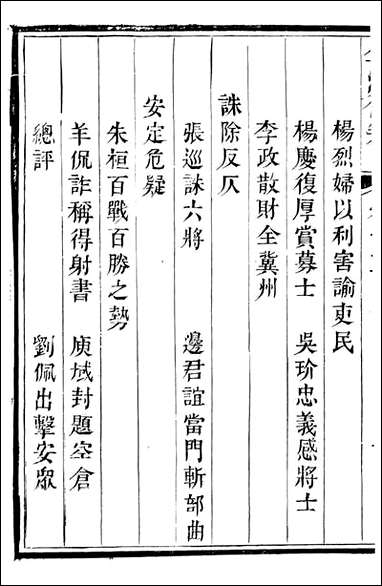 楊烈婦以利害諭吏民
楊慶復厚賞募士　吳玠忠義感將士
李政散財全冀州
誅除反仄
張巡誅六將　邊君誼當門斬部曲
安定危疑
朱桓百戰百勝之勢
羊侃詐稱得射書　庾域封題空倉
總評　劉佩出擊安眾